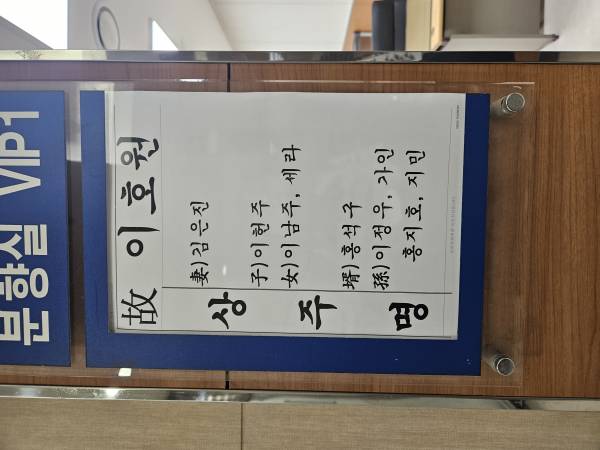 분향실 VIP1
故 이호원
상주명
妻)김은진
子)이현주
女)이남주, 세라
壻)홍석구
孫)이정우, 가인
홍지호, 지민